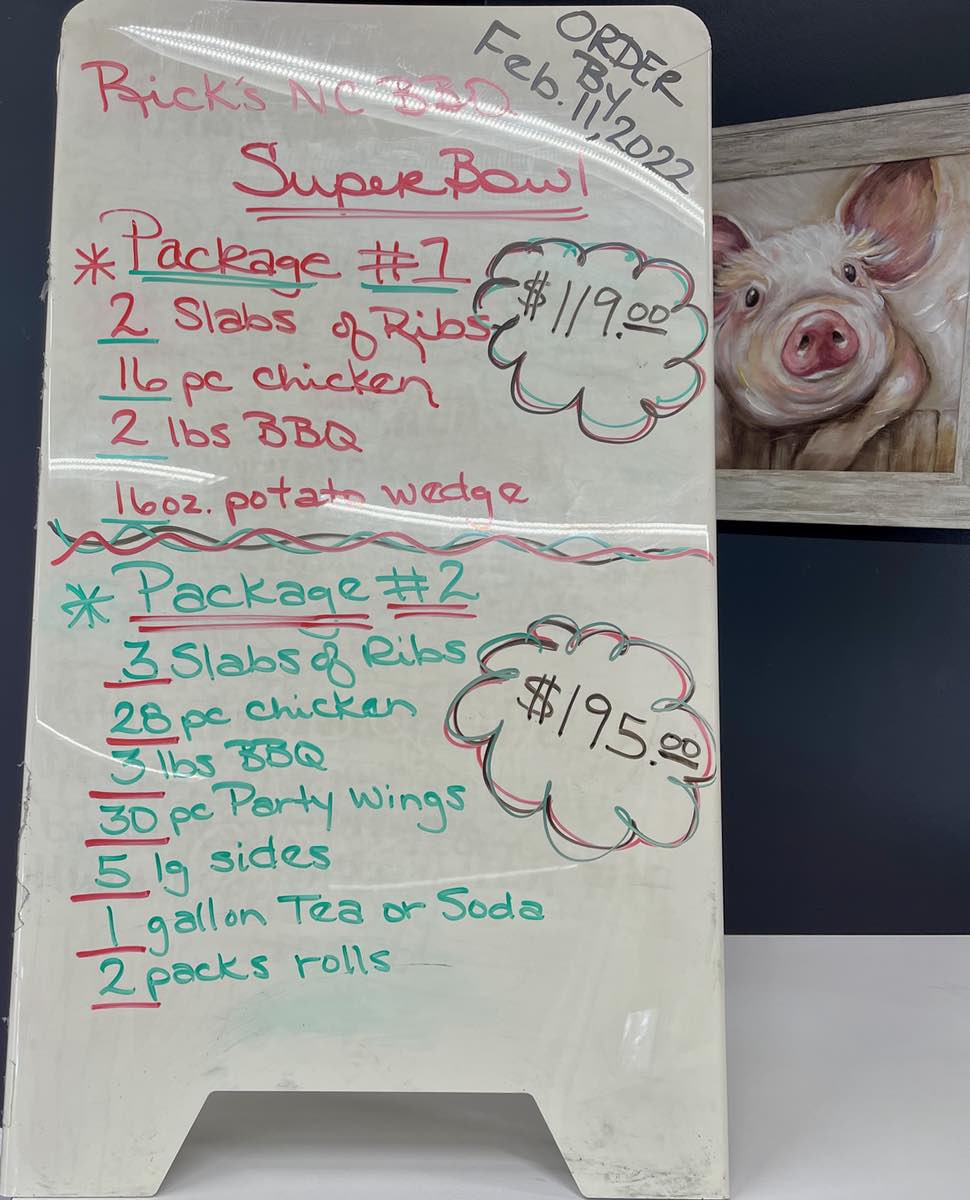 ORDER
BY
Feb. 11, 2022
Rick's NC BBQ
Super Bowl
* Package #1
$119.00
2 Slabs of Ribs
16 pc chicken
2 lbs BBQ
16oz. potato wedge
* Package #2
$195.00
3 Slabs of Ribs
28 pc chicken
3 lbs BBQ
30 pc Party Wings
5 lg sides
1 gallon Tea or Soda
2 packs rolls